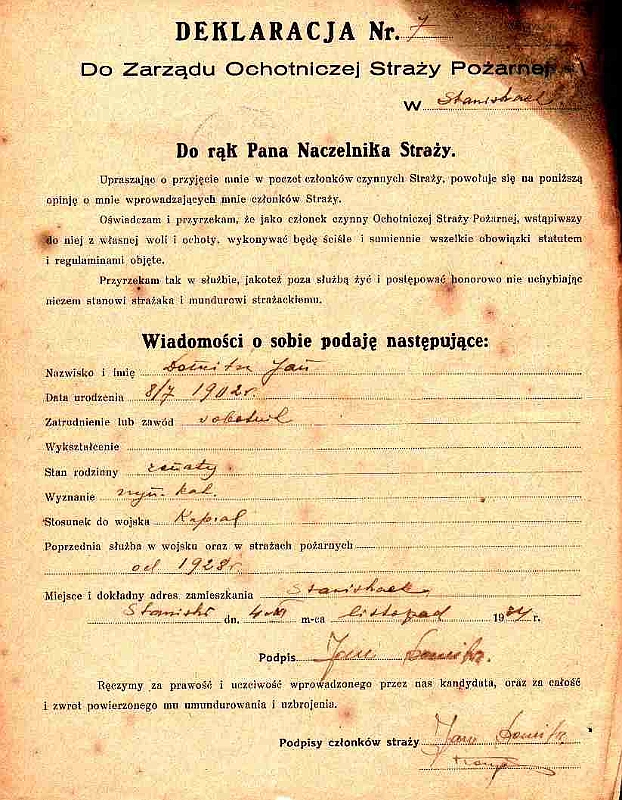 DEKLARACJA Nr. 7
Do Zarządu Ochotniczej Straży Pożarnej
w
Do rąk Pana Naczelnika Straży.
Upraszając o przyjęcie mnie w poczet członków czynnych Straży, powołuję się na poniższą
opinję o mnie wprowadzających mnie członków Straży.
Oświadczam i przyrzekam, że jako członek czynny Ochotniczej Straży Pożarnej, wstąpiwszy
do niej z własnej woli i ochoty, wykonywać będę ściśle i sumiennie wszelkie obowiązki statutem
i regulaminami objęte.
Przyrzekam tak w służbie, jakoteż poza służbą żyć i postępować honorowo nie uchybiając
niczem stanowi strażaka i mundurowi strażackiemu.
Wiadomości o sobie podaję następujące:
Nazwisko i imię Jan
Data urodzenia 8/7 1902 r.
Zatrudnienie lub zawód
Wykształcenie
Stan rodzinny żonaty
Wyznanie rzym. kat.
Stosunek do wojska Kapral
Poprzednia służba w wojsku oraz w strażach pożarnych
od 1928 r.
Miejsce i dokładny adres zamieszkania
dn. m-ca listopad 1934 r.
Podpis Jan
Ręczymy za prawość i uczciwość wprowadzonego przez nas kandydata, oraz za całość
i zwrot powierzonego mu umundurowania i uzbrojenia.
Podpisy członków straży Jan